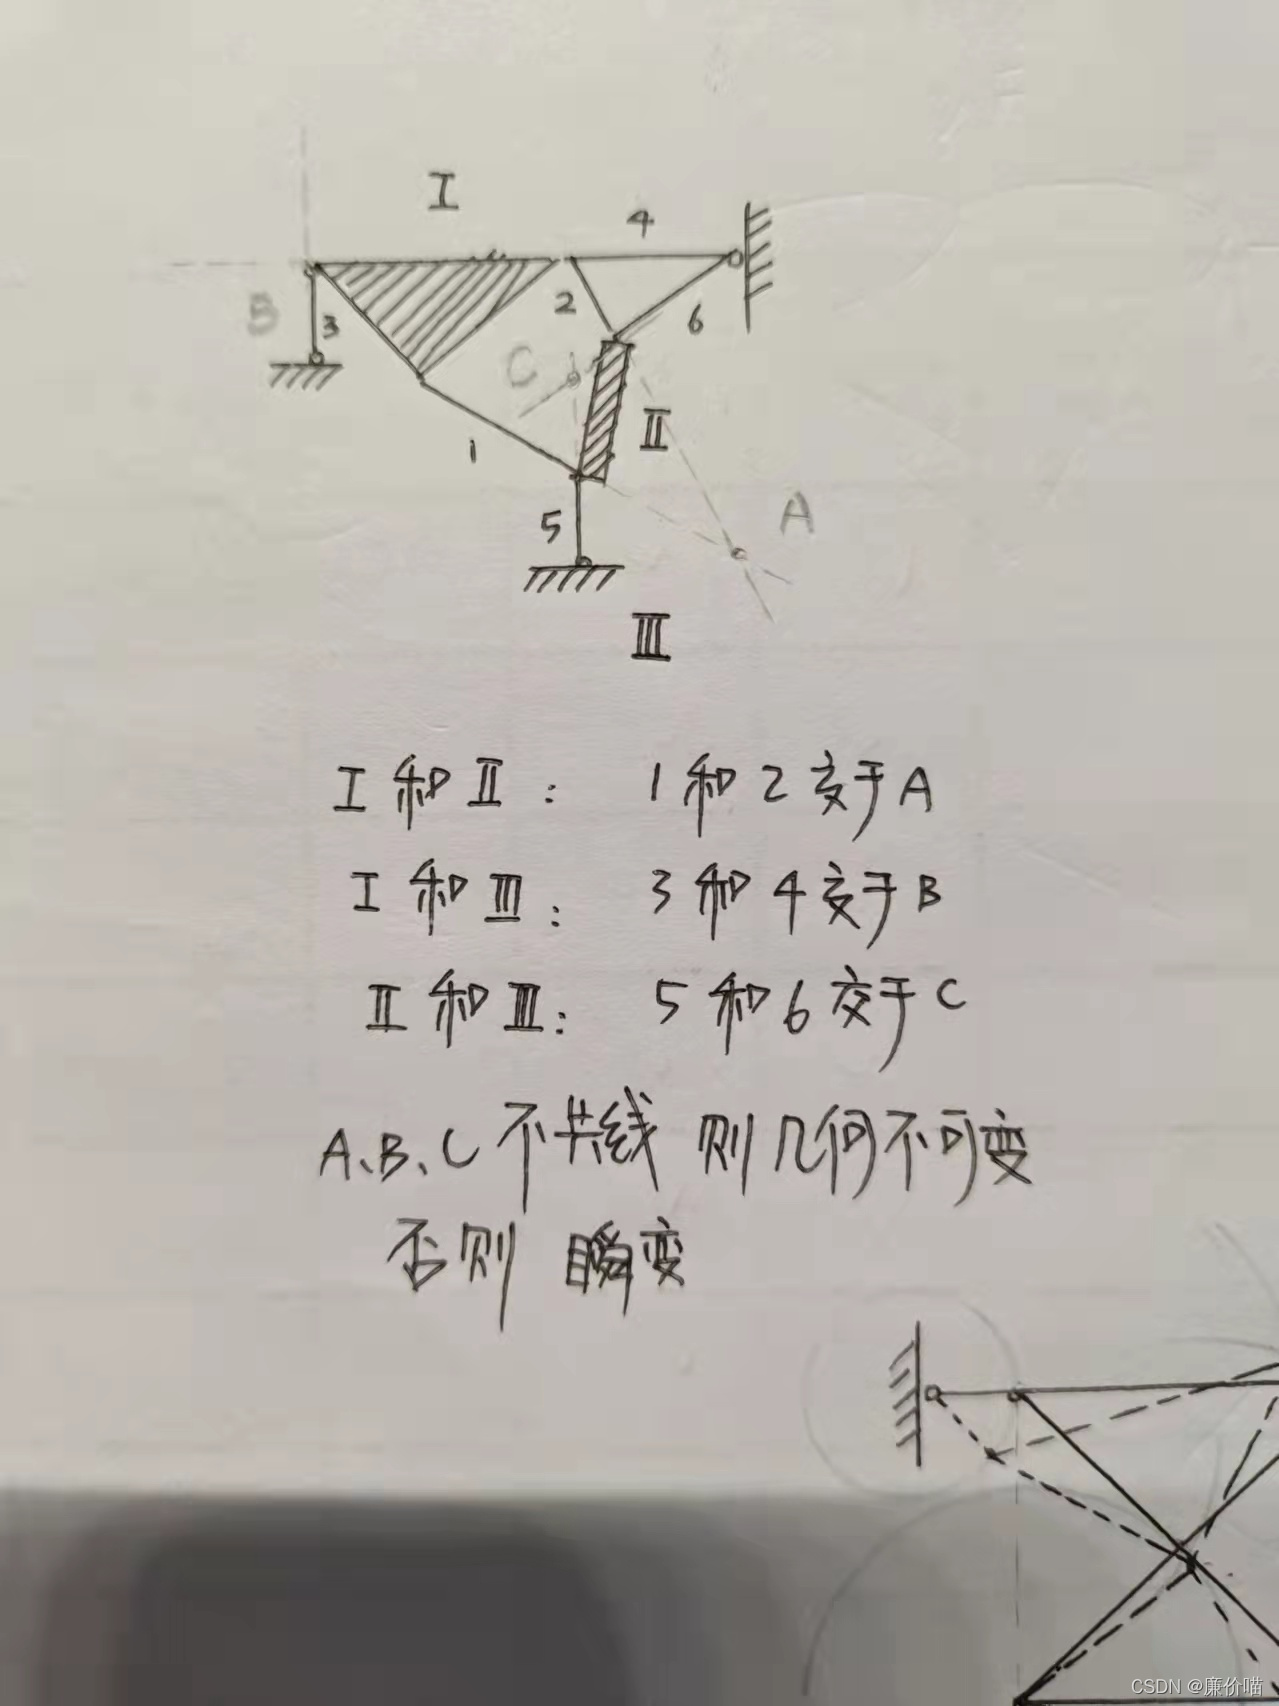 I
4
B
3
2
6
C
II
1
A
5
III
I 和 II： 1 和 2 交于 A
I 和 III： 3 和 4 交于 B
II 和 III： 5 和 6 交于 C
A、B、C 不共线 则几何不可变
否则 瞬变
CSDN @廉价喵